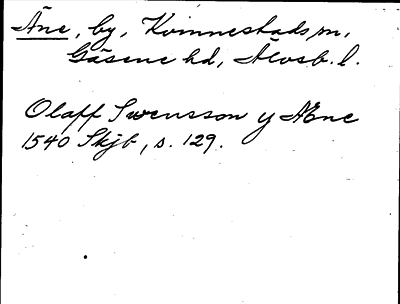 Äne, by, Kvinnestads sn,
Gäsene hd, Älvsb. l.
Olaff Swensson y Æne
1540 Skjb, s. 129.